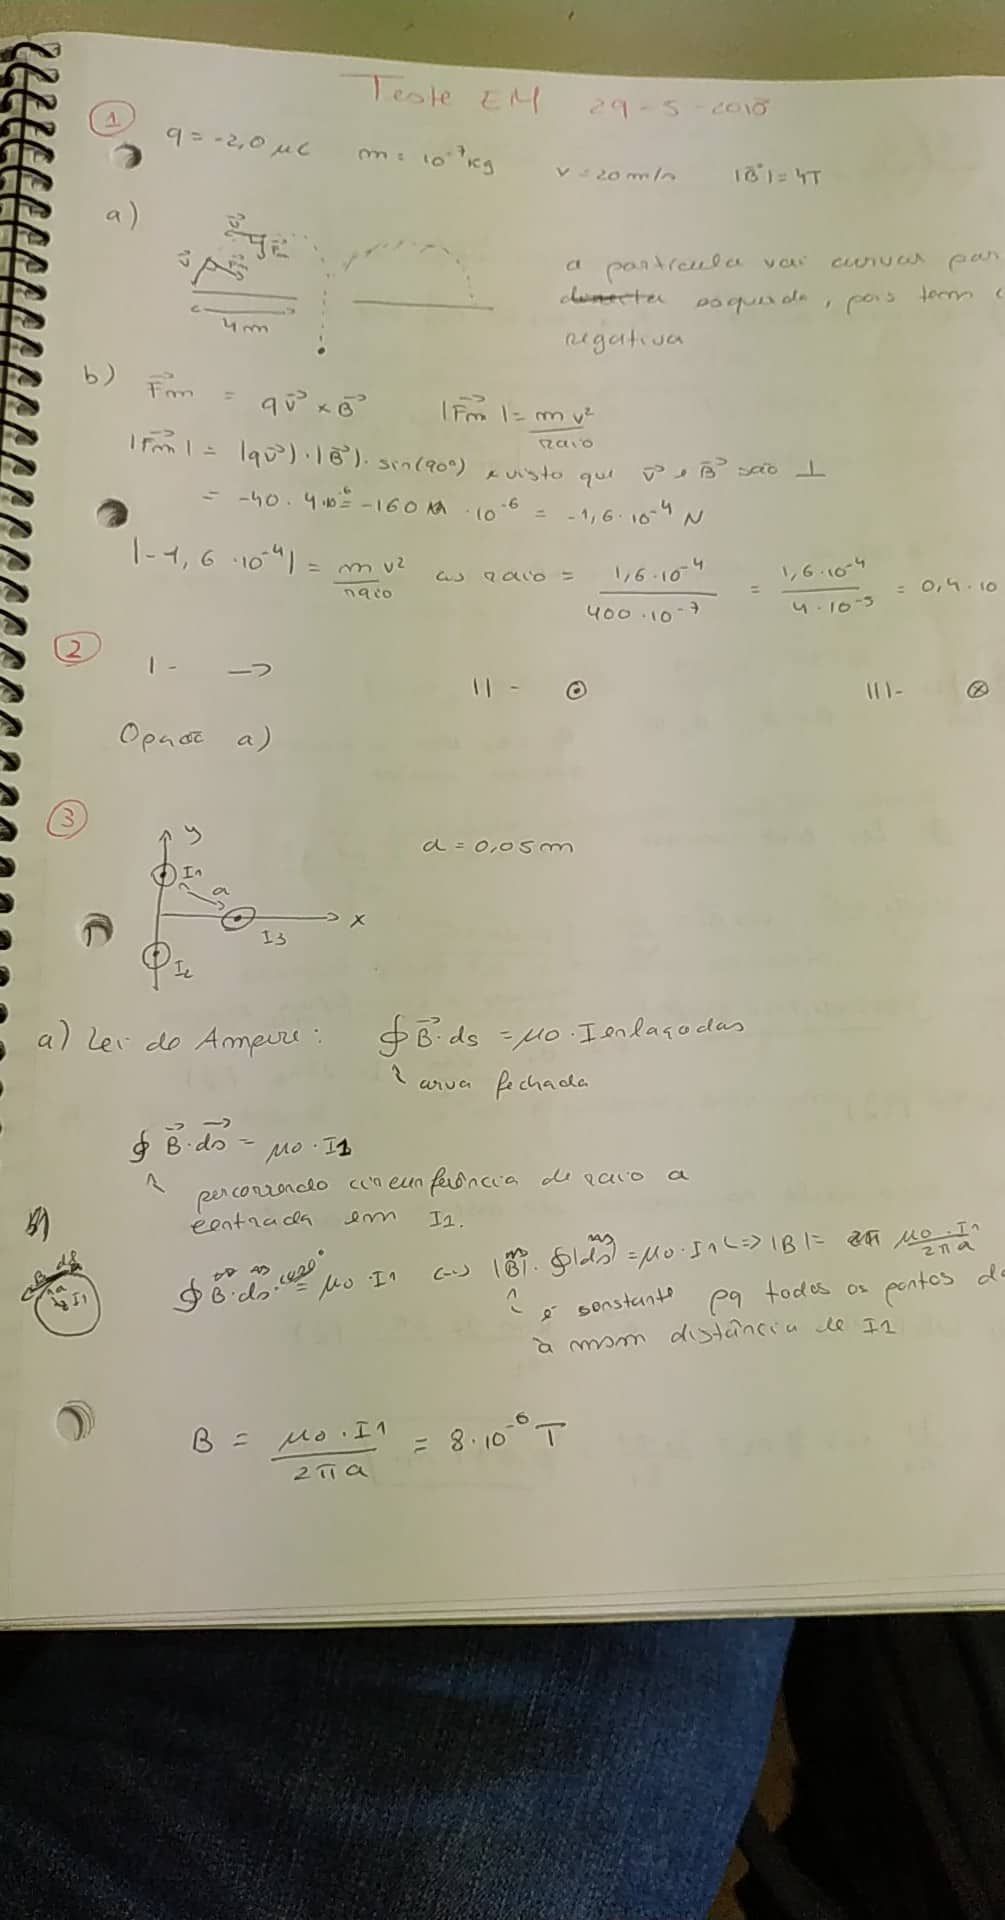 Teste EM 29-5-2018
1
q = -2,0 μC m = 10⁻⁷ Kg v = 20 m/s |B⃗| = 4T
a)
v⃗ F⃗m
v⃗ F⃗m
4m
a particula vai curvar par
esquerda, pois tem c
negativa
b) F⃗m = qv⃗ × B⃗ |F⃗m| = m v² / raio
|F⃗m| = |qv⃗|·|B⃗|· sin(90º) visto que v⃗ e B⃗ são ⊥
= -40 · 4·10⁻⁶ = -160 · 10⁻⁶ = -1,6·10⁻⁴ N
|-1,6·10⁻⁴| = m v² / raio <=> raio = 1,6·10⁻⁴ / 400·10⁻⁷ = 1,6·10⁻⁴ / 4·10⁻⁵ = 0,4·10
2
I - → II - ⊙ III - ⊗
Opção a)
3
y
I1
a
x
I3
I2
a = 0,05m
a) Lei de Ampere: ∮ B⃗·ds = μ0 · Ienlaçadas
curva fechada
∮ B⃗·ds⃗ = μ0 · I1
percorrendo circunferência de raio a
centrada em I1.
B ds
a I1
∮ B⃗·ds⃗·cos0º = μ0·I1 <=> |B⃗|·∮|ds⃗| = μ0·I1 <=> |B| = μ0·I1 / 2πa
é constante pq todos os pontos
à msm distância de I1
B = μ0·I1 / 2πa = 8·10⁻⁶ T